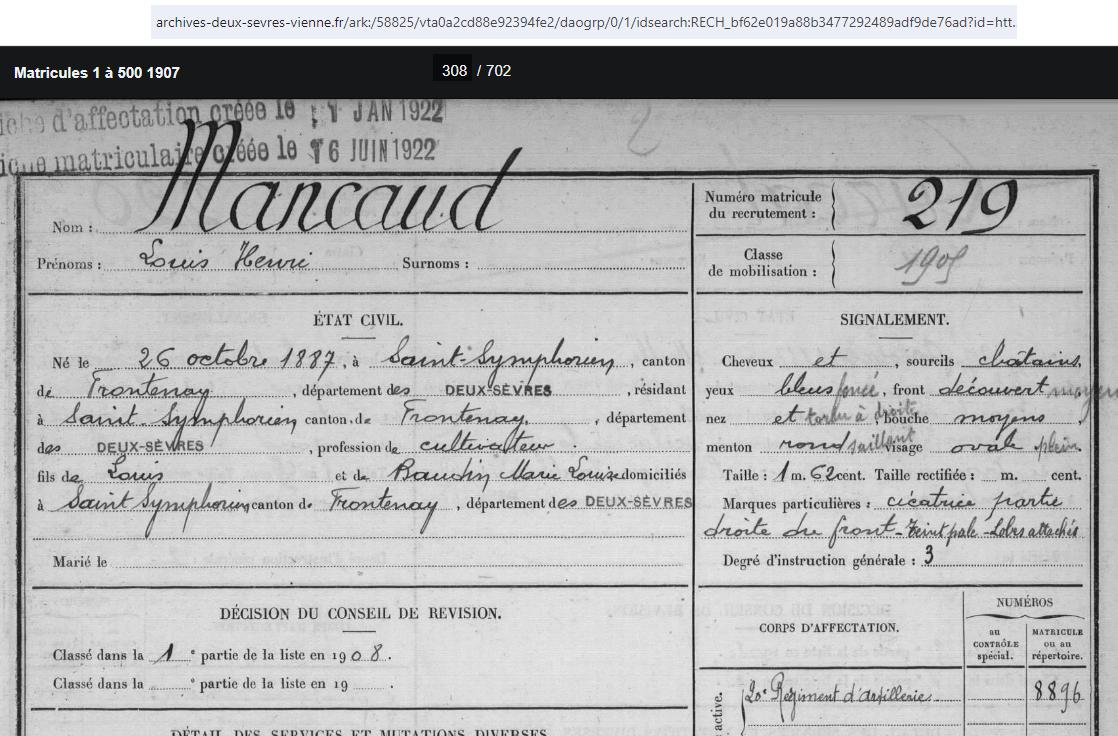 archives-deux-sevres-vienne.fr/ark:/58825/vta0a2cd88e92394fe2/daogrp/0/1/idsearch:RECH_bf62e019a88b3477292489adf9de76ad?id=htt..
Matricules 1 à 500 1907
308 / 702
d'affectation créée le JAN 1922
matriculaire créée le 6 JUIN 1922
Nom : Mancaud
Numéro matricule du recrutement : 219
Prénoms : Louis Henri Surnoms :
Classe de mobilisation : 190
ÉTAT CIVIL.
Né le 26 octobre 1887, à Saint-Symphorien, canton
de Frontenay, département des DEUX-SÈVRES, résidant
à Saint-Symphorien canton de Frontenay, département
des DEUX-SÈVRES, profession de cultivateur.
fils de Louis et de Baudin Marie Louise domiciliés
à Saint Symphorien canton de Frontenay, département des DEUX-SÈVRES
Marié le
SIGNALEMENT.
Cheveux et, sourcils chatains,
yeux bleus foncé, front découvert moyen
nez et tordu à droite, bouche moyens,
menton rond saillant visage ovale plein
Taille : 1 m. 62 cent. Taille rectifiée : m. cent.
Marques particulières : cicatrice partie
droite du front - teint pale - Lobes attachés
Degré d'instruction générale : 3
DÉCISION DU CONSEIL DE REVISION.
Classé dans la 1e partie de la liste en 1908.
Classé dans la e partie de la liste en 19 .
CORPS D'AFFECTATION.
NUMÉROS
au CONTRÔLE spécial.
MATRICULE ou au répertoire.
active.
20e Régiment d'artillerie 8896
DÉTAIL DES SERVICES ET MUTATIONS DIVERSES